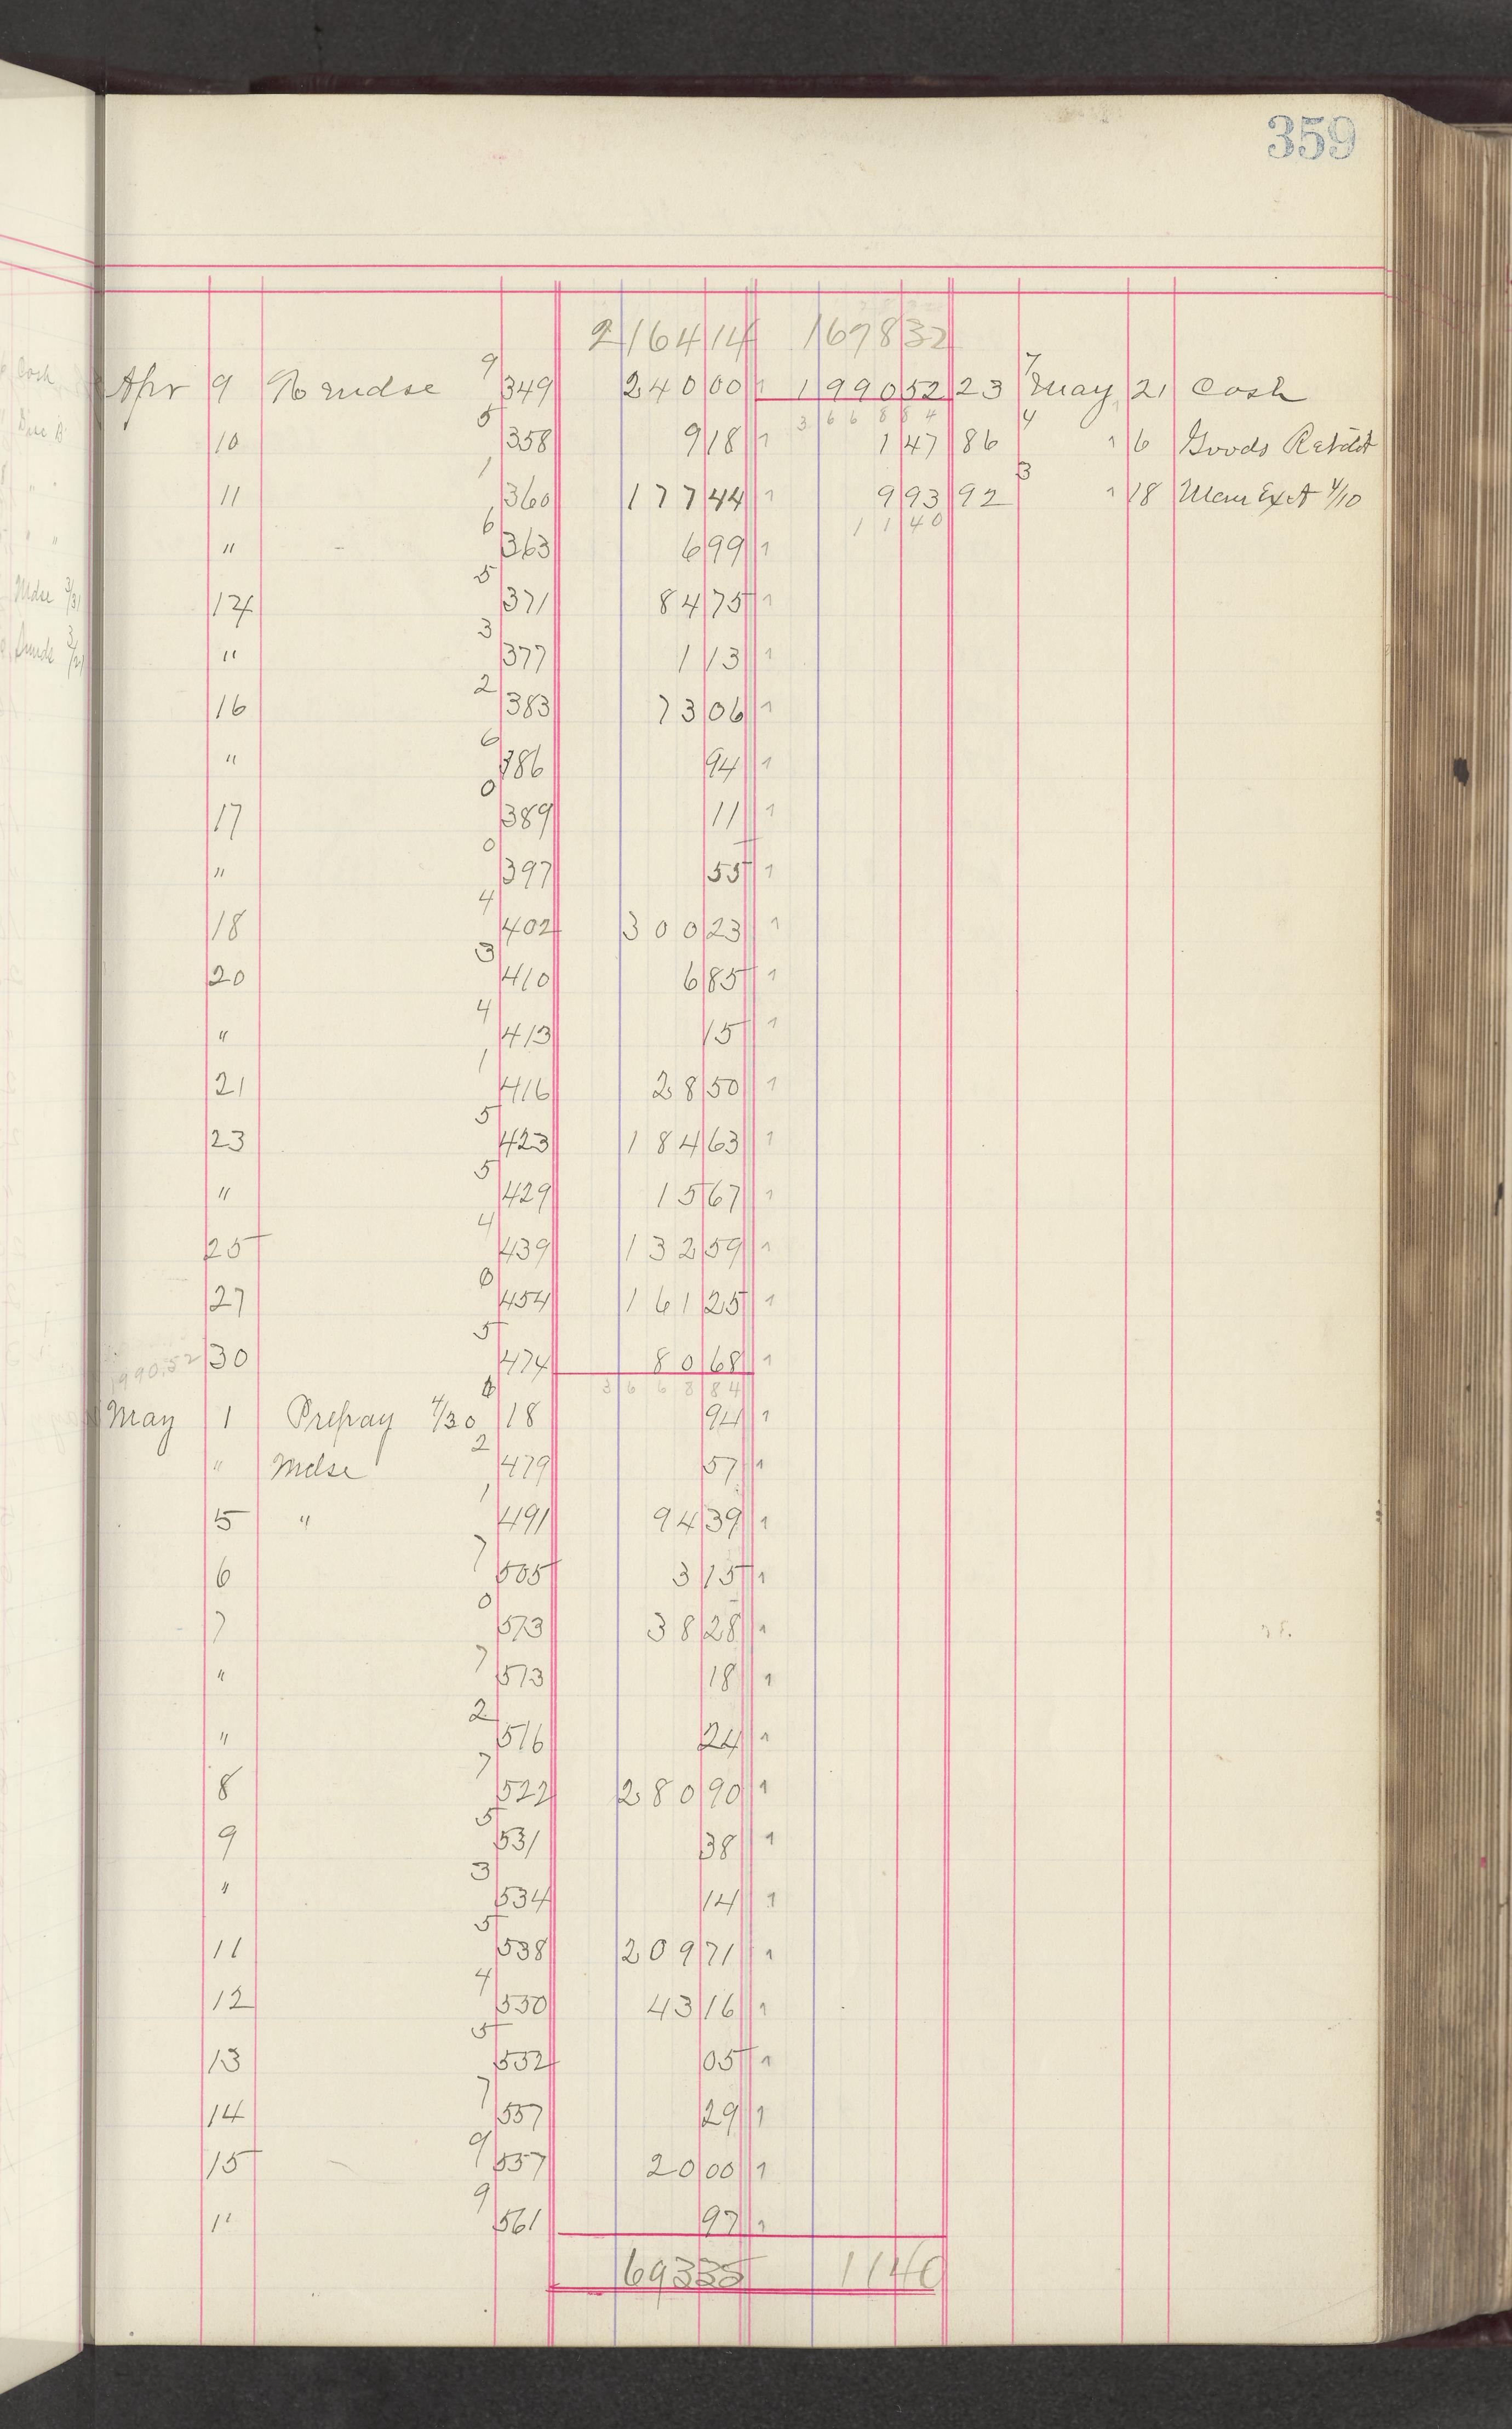 359
2164 14 1678 32
Apr 9 To mdse 9 349 240 00 1 1990 52 23 7 May 21 Cash
3668 84
10 5 358 9 18 1 1 47 86 4 " 6 Goods Ret'd
11 1 360 177 44 1 9 93 92 3 " 18 Man Ex 4/10
11 40
" 6 363 6 99 1
14 5 371 84 75 1
" 3 377 1 13 1
16 2 383 73 06 1
" 6 386 94 1
17 0 389 11 1
" 0 397 55 1
18 4 402 300 23 1
20 3 410 6 85 1
" 4 413 15 1
21 1 416 28 50 1
23 5 423 184 63 1
" 5 429 15 67 1
25 4 439 132 59 1
27 0 454 161 25 1
1990.52 30 5 474 80 68 1
3668 84
May 1 Prepay 4/30 18 94 1
" Mdse 2 479 57 1
5 " 1 491 94 39 1
6 7 505 3 15 1
7 0 513 38 28 1
" 7 513 18 1
" 2 516 24 1
8 7 522 280 90 1
9 5 531 38 1
" 3 534 14 1
11 5 538 209 71 1
12 4 550 43 16 1
13 5 552 05 1
14 7 557 29 1
15 9 557 20 00 1
" 9 561 97 1
693 35 11 40